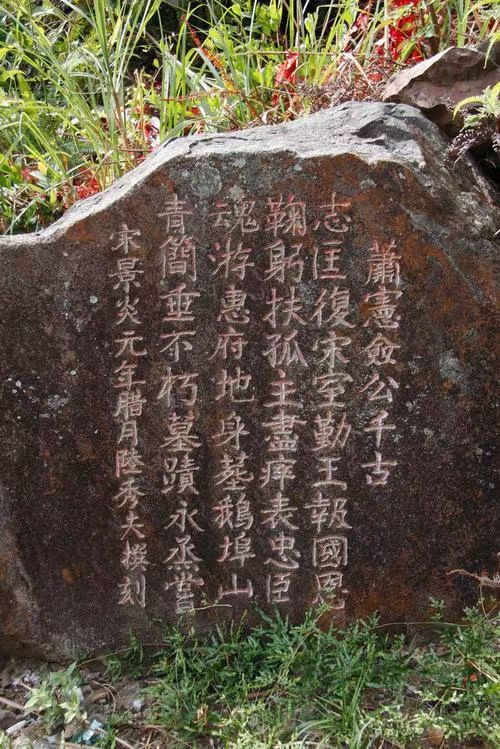 蕭憲僉公千古
志匡復宋室勤王報國恩
鞠躬扶孤主盡瘁表忠臣
魂游惠府地身墓鵝埠山
青簡垂不朽墓蹟永烝嘗
宋景炎元年腊月陸秀夫撰刻